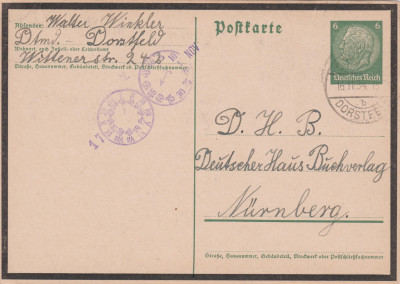 Absender: Walter Winkler
Dtmd. - Dorstfeld
Wohnort, auch Zustell- oder Leitpostamt
Wittenerstr. 242
Straße, Hausnummer, Gebäudeteil, Stockwerk od. Postschließfachnummer
Postkarte
6 6
Deutsches Reich
b
D. H. B.
Deutscher Haus Buchverlag
Nürnberg.
Straße, Hausnummer, Gebäudeteil, Stockwerk oder Postschließfachnummer
17
NOV